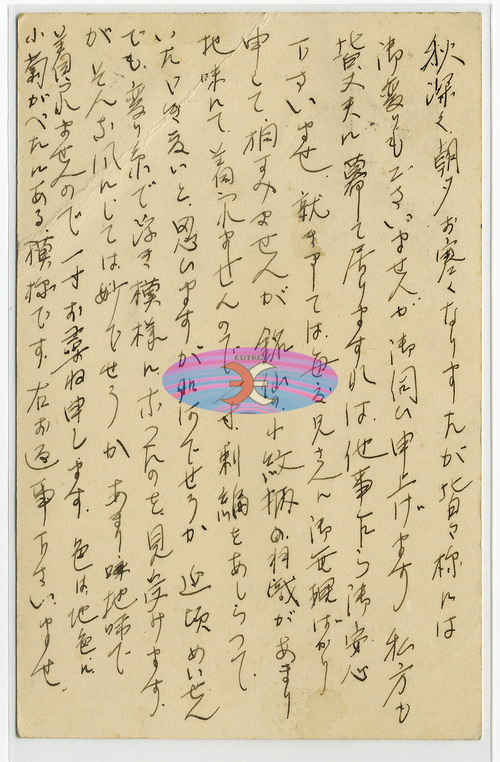 秋深く朝夕お寒くなりましたが皆々様には
御変りもございませんか御伺ひ申上げます 私方も
皆丈夫に暮して居りますれば他事乍ら御安心
下さいませ 就きましては毎度兄さんに御無理ばかり
申して相すみませんが銘仙の小紋柄の羽織があまり
地味にて着られませんので一寸刺繍をあしらつて
いただき度いと思ひますが如何でせうか 近頃めいせん
でも変り糸で浮き模様になつたのを見受けます
がそんな風にしては妙でせうか あまり地味で
着られませんので一寸お尋ね申します 色は地色に
小菊がべたにある模様です 右お返事下さいませ
EUTRO